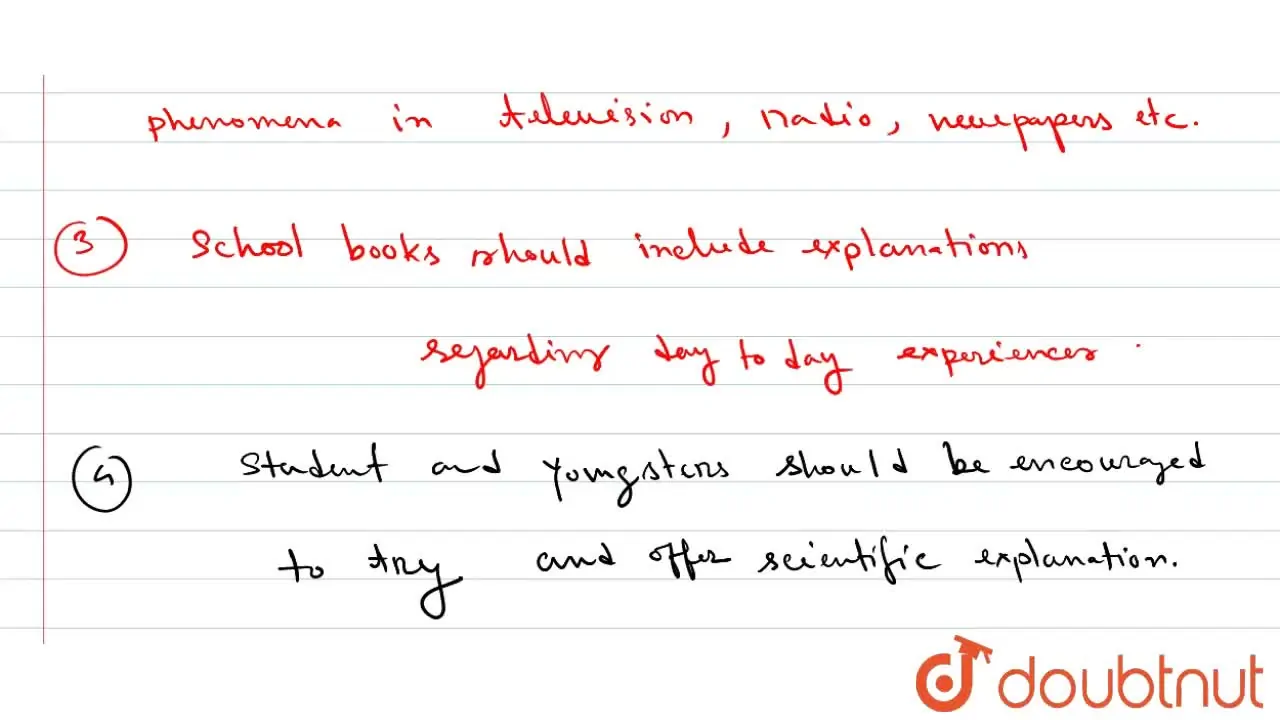 phenomena in television, radio, newepapers etc.
3 School books should include explanations
regarding day to day experiences.
4 Student and youngsters should be encouraged
to try and offer scientific explanation.
doubtnut